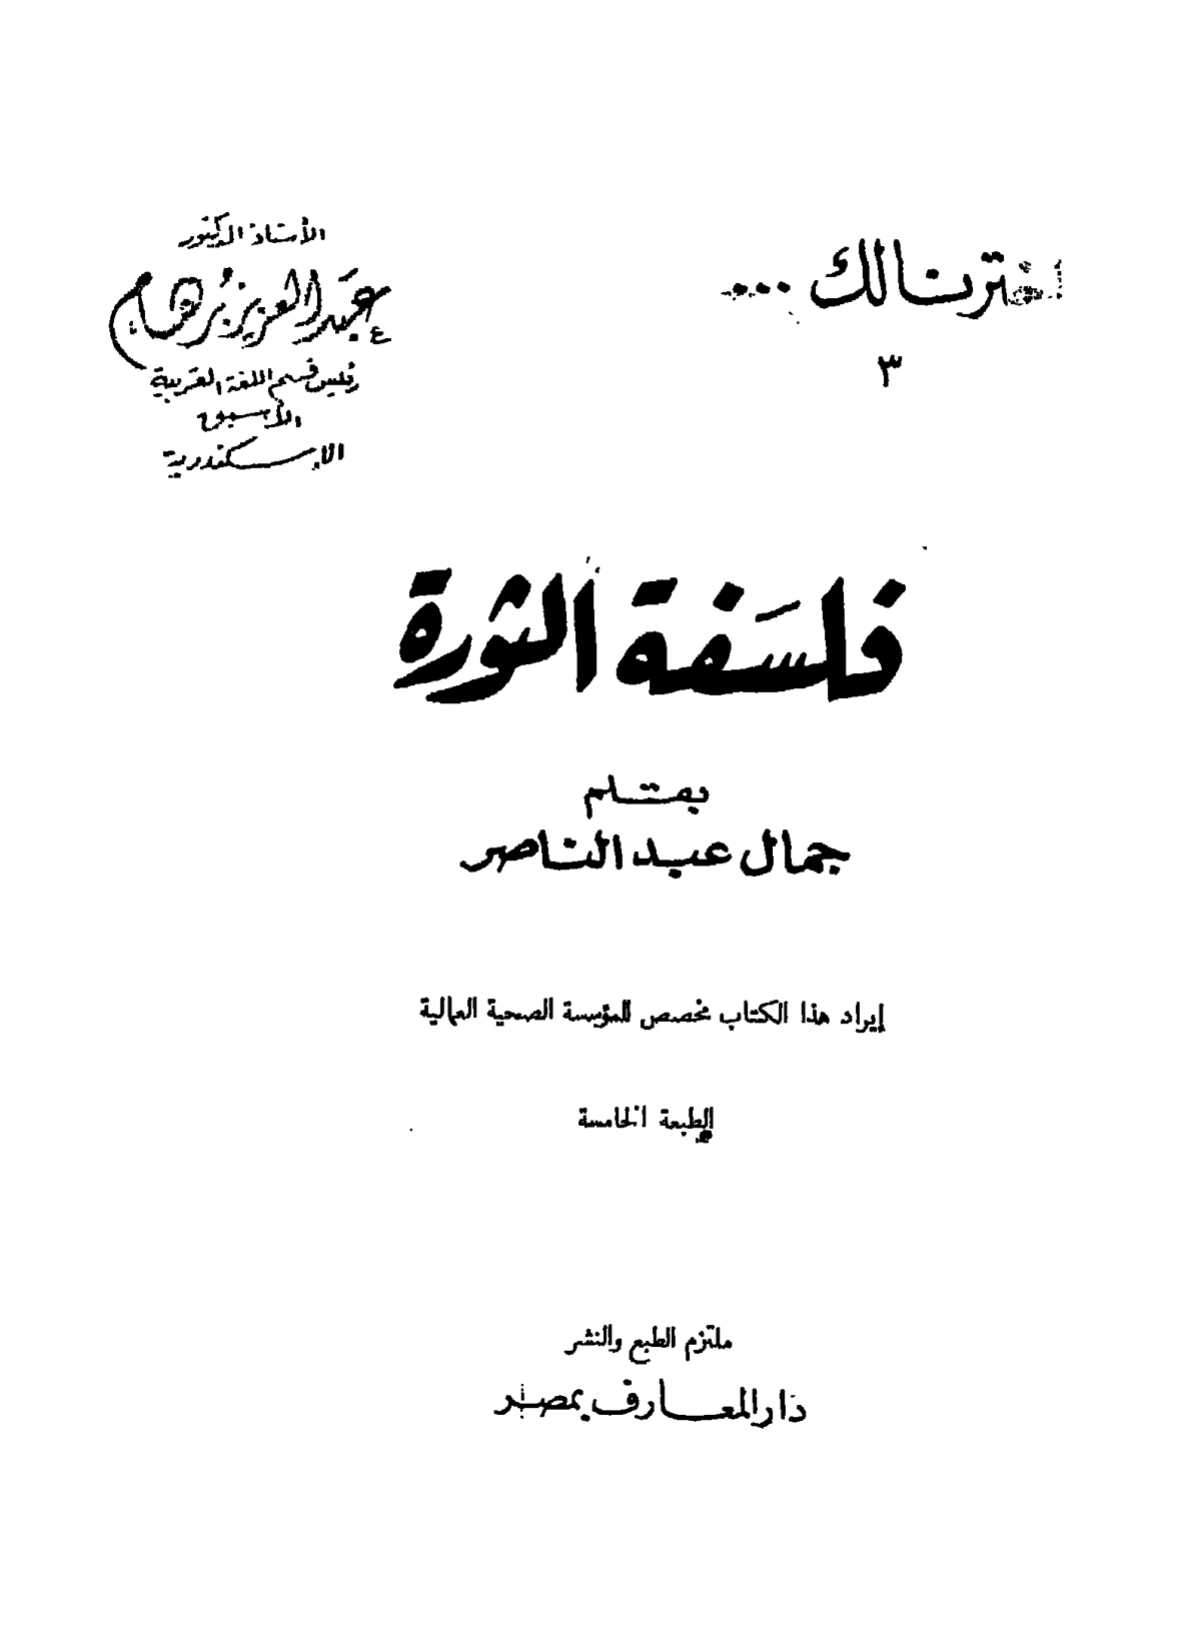 اخترنا لك ...
٣
الأستاذ الدكتور
عبد العزيز برهام
رئيس قسم اللغة العربية
الأسبق
الإسكندرية
فلسَفة الثورة
بقلم
جمال عبد الناصر
إيراد هذا الكتاب مخصص للمؤسسة الصحية العمالية
الطبعة الخامسة
ملتزم الطبع والنشر
دار المعارف بمصر